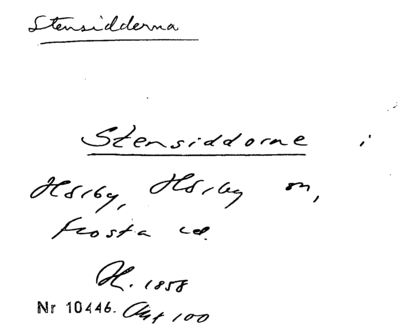 Stensidderna
Stensiddorne i
Hörby, Hörby sn,
Frosta hd.
H. 1858
Nr 10446. Akt 100